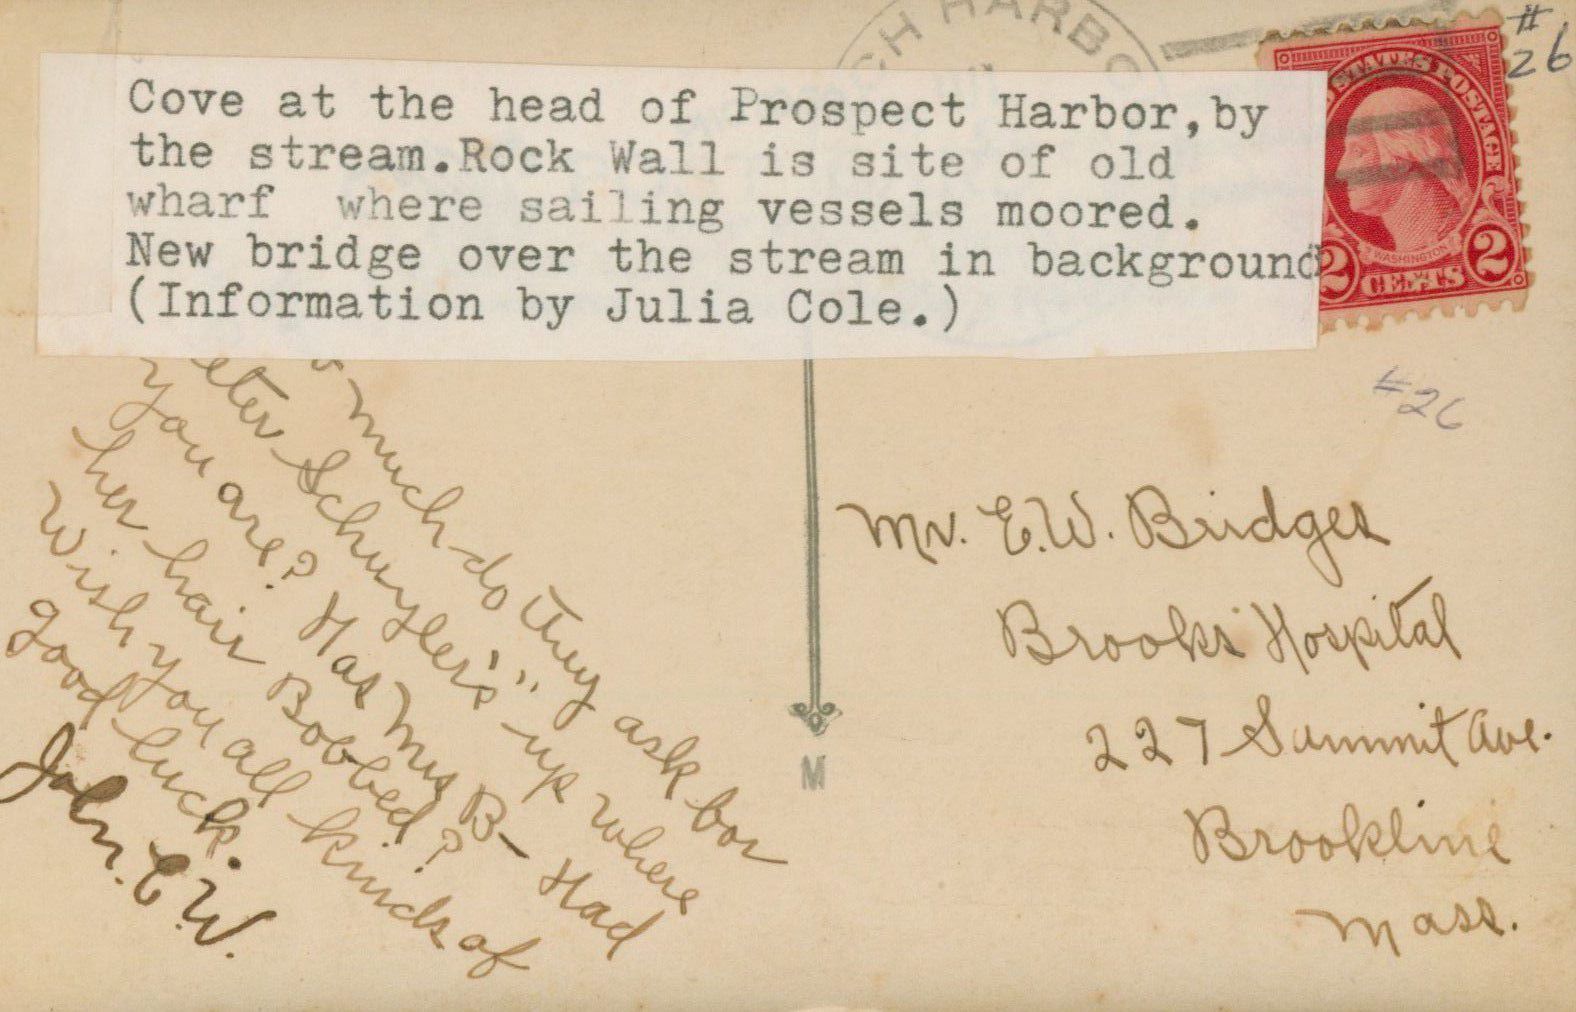 CH HARBO
# 26
STATES POSTAGE
WASHINGTON
2 CENTS 2
Cove at the head of Prospect Harbor,by
the stream.Rock Wall is site of old
wharf where sailing vessels moored.
New bridge over the stream in background
(Information by Julia Cole.)
#26
much do they ask for
eter Schuyler's" up where
you are? Has Mrs B— Had
her hair Bobbed?
Wish you all kinds of
good luck.
John. E.W.
M
Mr. E.W. Bridges
Brooks Hospital
227 Summit Ave.
Brookline
Mass.